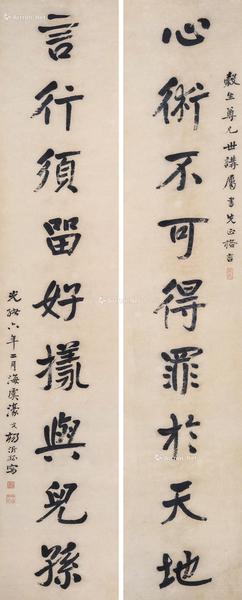 心術不可得罪於天地
穀生尊兄世講屬書先正格言
言行須留好樣與兒孫
光緒六年二月海虞濠叟楊沂孫寫